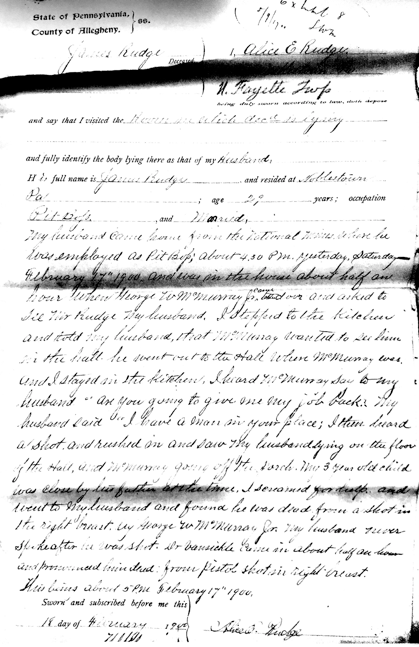 State of Pennsylvania, } ss.
County of Allegheny. }
James Rudge Deceased
I, Alice E Rudge
N. Fayette Twp
being duly sworn according to law, doth depose
and say that I visited the House in which deceased is lying
and fully identify the body lying there as that of my Husband,
H is full name is James Rudge and resided at Noblestown
Pa ; age 29 years; occupation
Pit Boss , and Married,
My husband Came home from the National Mines where he
was employed as Pit Boss, about 4.30 P.M. yesterday, Saturday
February 17" 1900. and was in the house about half an
hour When George W McMurray Jr. came over and asked to
see Mr Rudge My husband. I stepped to the Kitchen
and told my husband, that McMurray wanted to see him
in the hall. he went out to the Hall where McMurray was.
and I stayed in the Kitchen, I heard McMurray say to my
husband " are you going to give me my job back? My
husband said " I have a man in your place; I then heard
a shot. and rushed in and saw My husband lying on the floor
of the Hall, and McMurray going off the Porch. My 3 year old child
was close by his father at the time. I screamed for help. and
went to My husband and found he was dead from a shot in
the right breast. by George W McMurray Jr. My husband never
spoke after he was shot. Dr Vansickle Came in about half an hour
and pronounced him dead, from pistol shot in right breast.
This was about 5 P.M. February 17" 1900.
Sworn and subscribed before me this
18 day of February 1900
Alice E. Rudge